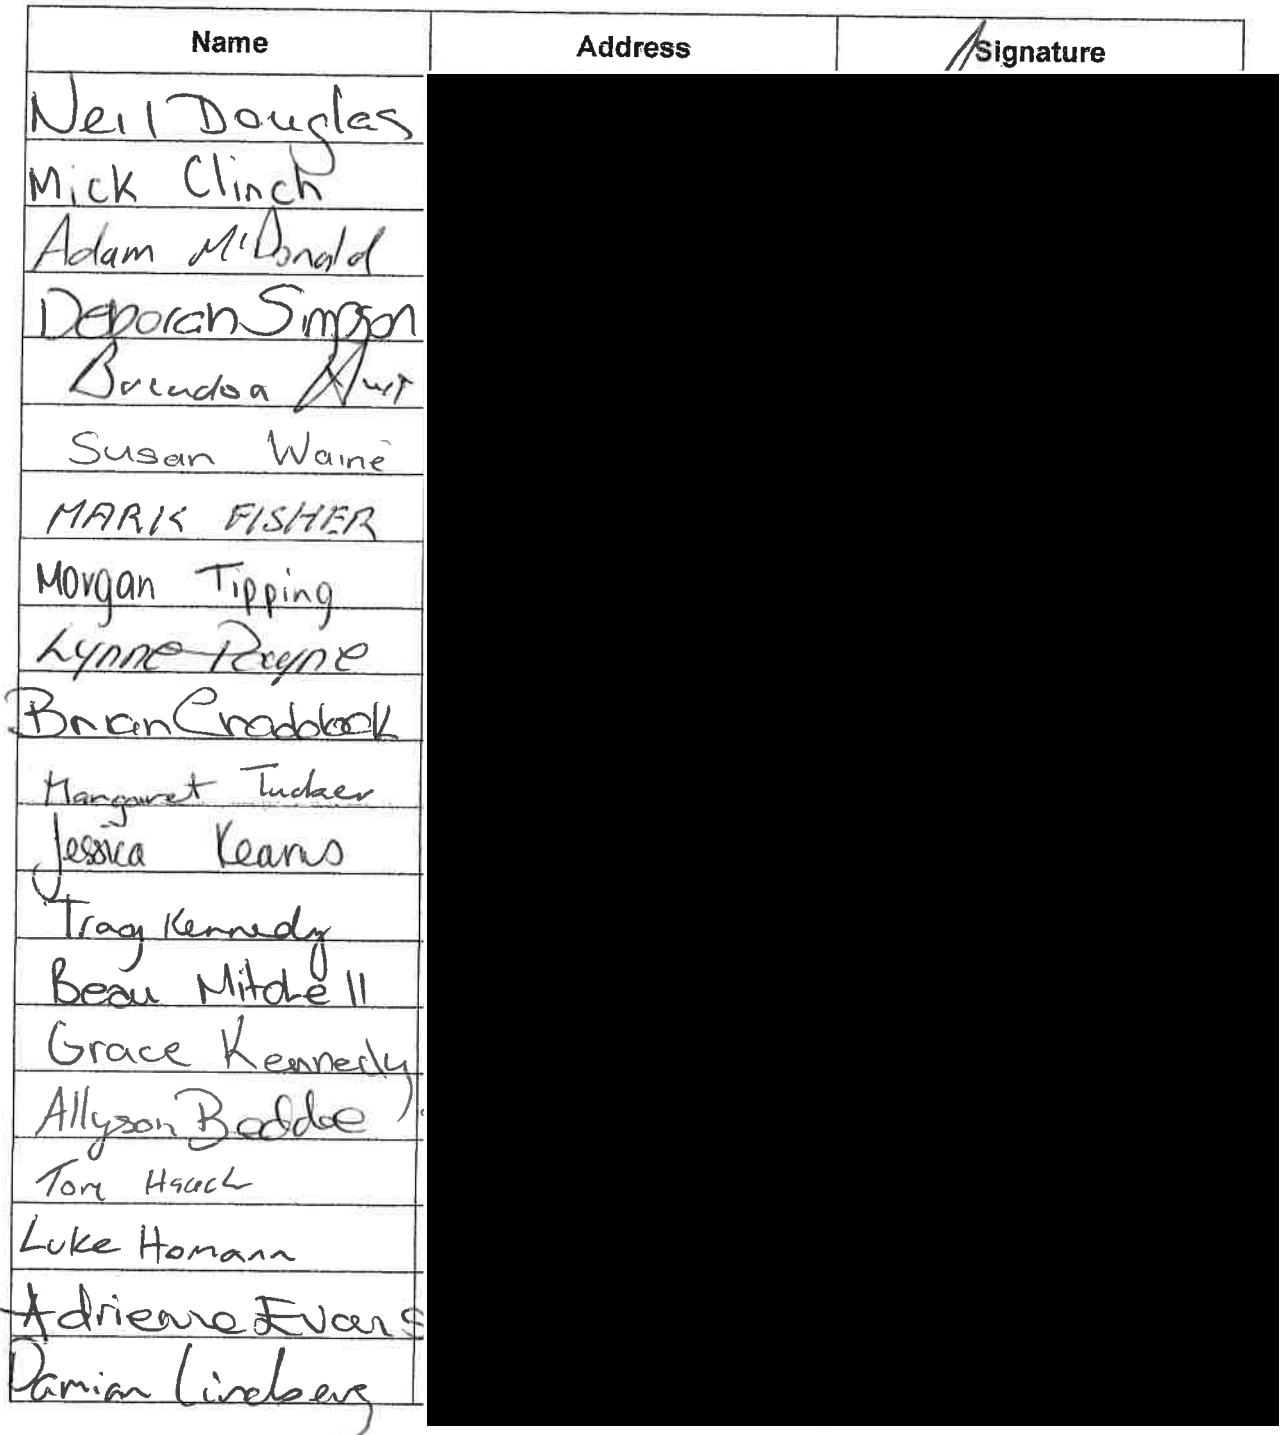 Name Address Signature
Neil Douglas
Mick Clinch
Adam McDonald
Deborah Simpson
Susan Waine
MARK FISHER
Morgan Tipping
Lynne Payne
Brian Craddock
Margaret Tucker
Jessica Kearns
Tracy Kennedy
Beau Mitchell
Grace Kennedy
Allyson Beddoe
Tom
Luke Homann
Adrienne Evans
Damian Lindberg